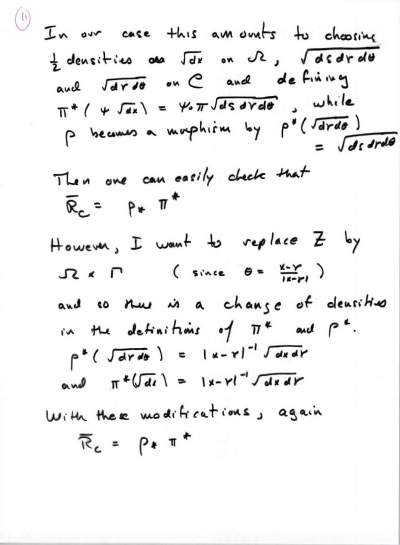 11
In our case this amounts to choosing
½ densities √dx on Ω, √ds dr dθ
and √dr dθ on C and defining
π*( ψ √dx) = ψ∘π √ds dr dθ , while
ρ becomes a morphism by ρ*(√dr dθ)
= √ds dr dθ
Then one can easily check that
R̄c = ρ* π*
However, I want to replace Z by
Ω × Γ ( since θ = x-r / |x-r| )
and so there is a change of densities
in the definitions of π* and ρ*.
ρ*( √dr dθ ) = |x-r|⁻¹ √dx dr
and π*(√dx) = |x-r|⁻¹ √dx dr
With these modifications, again
R̄c = ρ* π*